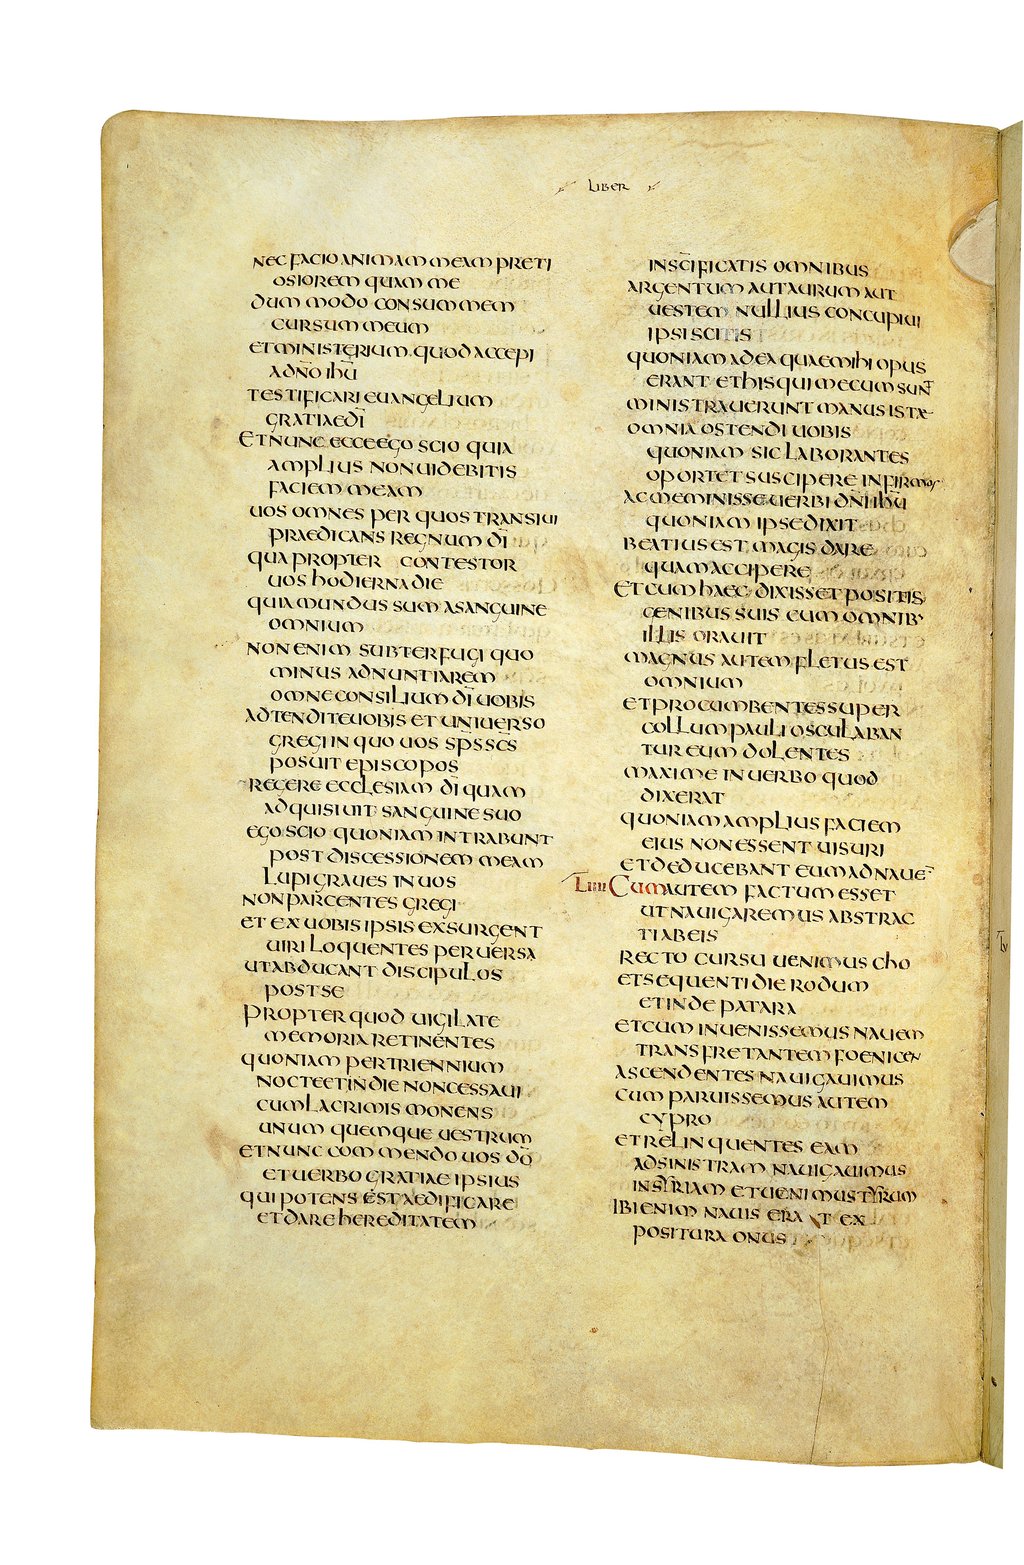 LIBER
NEC FACIO ANIMAM MEAM PRETI
OSIOREM QUAM ME
DUM MODO CONSUMMEM
CURSUM MEUM
ET MINISTERIUM QUOD ACCEPI
A DN̄O IHŪ
TESTIFICARI EUANGELIUM
GRATIAE DĪ
ET NUNC ECCE EGO SCIO QUIA
AMPLIUS NON UIDEBITIS
FACIEM MEAM
UOS OMNES PER QUOS TRANSIUI
PRAEDICANS REGNUM DĪ
QUAPROPTER CONTESTOR
UOS HODIERNA DIE
QUIA MUNDUS SUM A SANGUINE
OMNIUM
NON ENIM SUBTERFUGI QUO
MINUS ADNUNTIAREM
OMNE CONSILIUM DĪ UOBIS
ADTENDITE UOBIS ET UNIUERSO
GREGI IN QUO UOS SPS̄ SCS̄
POSUIT EPISCOPOS
REGERE ECCLESIAM DĪ QUAM
ADQUISIUIT SANGUINE SUO
EGO SCIO QUONIAM INTRABUNT
POST DISCESSIONEM MEAM
LUPI GRAUES IN UOS
NON PARCENTES GREGI
ET EX UOBIS IPSIS EXSURGENT
UIRI LOQUENTES PERUERSA
UT ABDUCANT DISCIPULOS
POST SE
PROPTER QUOD UIGILATE
MEMORIA RETINENTES
QUONIAM PER TRIENNIUM
NOCTE ET IN DIE NON CESSAUI
CUM LACRIMIS MONENS
UNUM QUEMQUE UESTRUM
ET NUNC COMMENDO UOS DŌ
ET UERBO GRATIAE IPSIUS
QUI POTENS EST AEDIFICARE
ET DARE HEREDITATEM
IN SC̄IFICATIS OMNIBUS
ARGENTUM AUT AURUM AUT
UESTEM NULLIUS CONCUPIUI
IPSI SCITIS
QUONIAM AD EA QUAE MIHI OPUS
ERANT ET HIS QUI MECUM SUNT
MINISTRAUERUNT MANUS ISTAE
OMNIA OSTENDI UOBIS
QUONIAM SIC LABORANTES
OPORTET SUSCIPERE INFIRMOS
AC MEMINISSE UERBI DN̄I IHŪ
QUONIAM IPSE DIXIT
BEATIUS EST MAGIS DARE
QUAM ACCIPERE
ET CUM HAEC DIXISSET POSITIS
GENIBUS SUIS CUM OMNIB'
ILLIS ORAUIT
MAGNUS AUTEM FLETUS EST
OMNIUM
ET PROCUMBENTES SUPER
COLLUM PAULI OSCULABAN
TUR EUM DOLENTES
MAXIME IN UERBO QUOD
DIXERAT
QUONIAM AMPLIUS FACIEM
EIUS NON ESSENT UISURI
ET DEDUCEBANT EUM AD NAUE¯
LIIII CUM AUTEM FACTUM ESSET
UT NAUIGAREMUS ABSTRAC
TI AB EIS
RECTO CURSU UENIMUS CHO
ET SEQUENTI DIE RODUM
ET INDE PATARA
ET CUM INUENISSEMUS NAUEM
TRANSFRETANTEM FOENICEN
ASCENDENTES NAUIGAUIMUS
CUM PARUISSEMUS AUTEM
CYPRO
ET RELINQUENTES EAM
AD SINISTRAM NAUIGAUIMUS
IN SYRIAM ET UENIMUS TYRUM
IBI ENIM NAUIS ERAT EX
POSITURA ONUS
LV